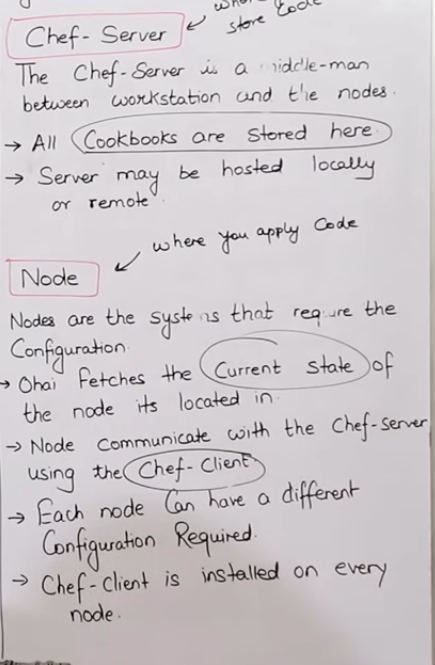 where
store Code
Chef-Server
The Chef-Server is a middle-man
between workstation and the nodes.
→ All Cookbooks are stored here.
→ Server may be hosted locally
or remote
where you apply Code
Node
Nodes are the systems that require the
Configuration.
→ Ohai Fetches the Current state of
the node its located in.
→ Node communicate with the Chef-server
using the Chef-Client
→ Each node Can have a different
Configuration Required.
→ Chef-Client is installed on every
node.